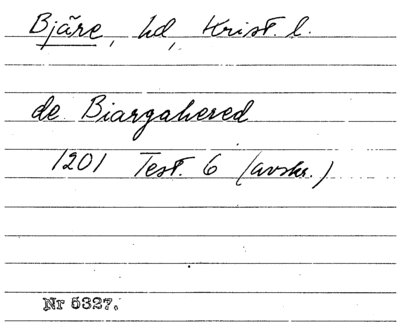 Bjäre, hd, Krist. l.
de Biargahered
1201 Test. 6 (avskr.)
Nr 5327.